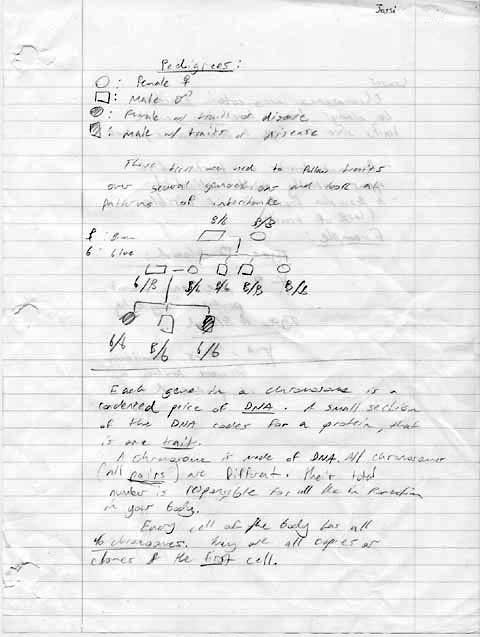 Jassi
Pedigrees:
○: Female ♀
□: Male ♂
: Female w/ traits of disease
: Male w/ traits of disease
These used to follow traits
over several generations and look at
patterns of inheritance
B/b B/B
B: Brown
b: blue
b/B B/b B/b B/B B/B
b/b B/b b/b
Each gene in a chromosome is a
condensed piece of DNA. A small section
of the DNA codes for a protein, that
is one trait.
A chromosome is made of DNA. All chromosomes
(all pairs) are different. Their total
number is responsible for all the
in your body.
Every cell of the body has all
46 chromosomes. They are all copies or
clones of the first cell.